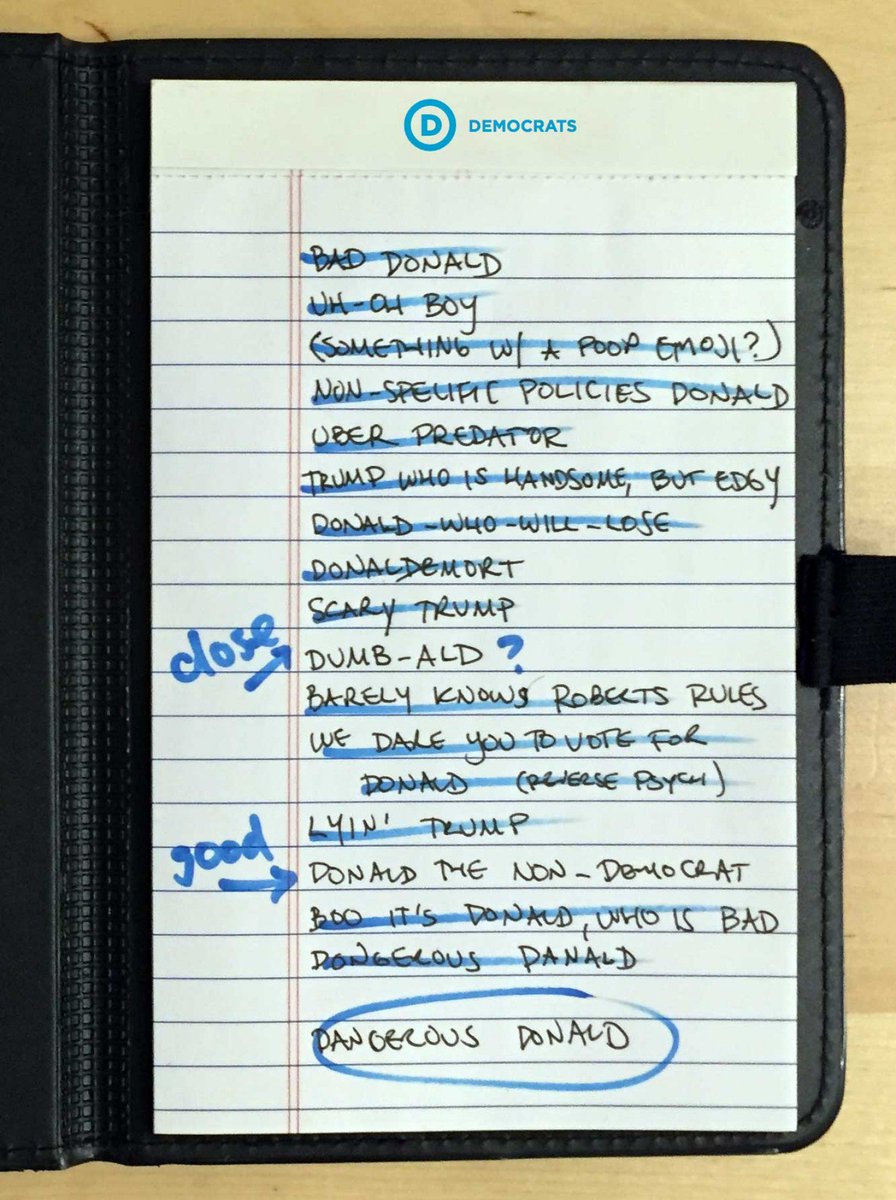 D DEMOCRATS
BAD DONALD
UH-OH BOY
(SOMETHING W/ A POOP EMOJI?)
NON-SPECIFIC POLICIES DONALD
UBER PREDATOR
TRUMP WHO IS HANDSOME, BUT EDGY
DONALD-WHO-WILL-LOSE
DONALDEMORT
SCARY TRUMP
close
DUMB-ALD ?
BARELY KNOWS ROBERTS RULES
WE DARE YOU TO VOTE FOR
DONALD (REVERSE PSYCH)
LYIN' TRUMP
good
DONALD THE NON-DEMOCRAT
BOO IT'S DONALD, WHO IS BAD
DONGEROUS DANALD
DANGEROUS DONALD